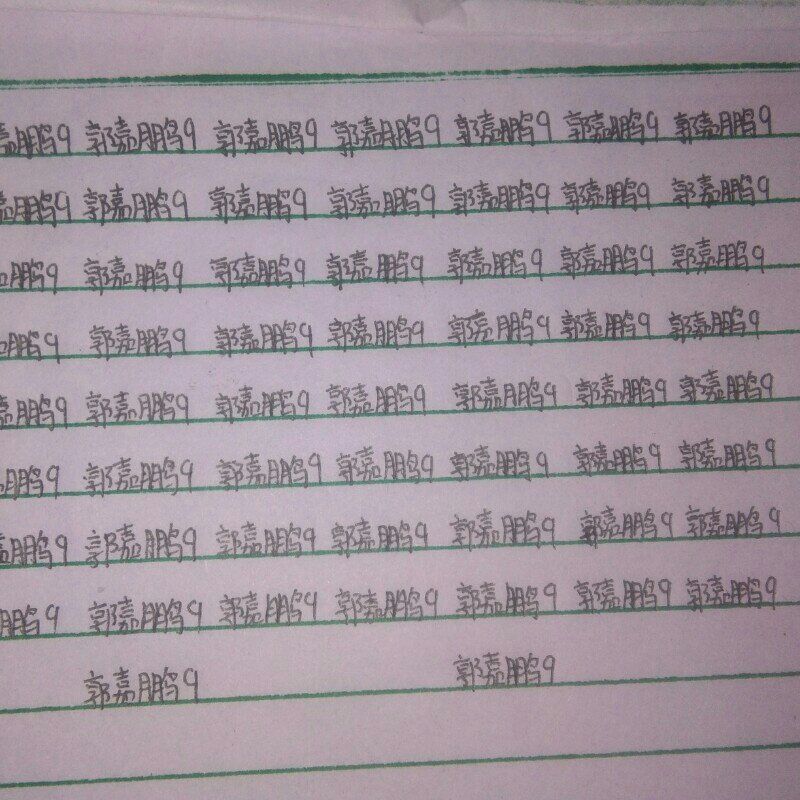 嘉鹏9 郭嘉鹏9 郭嘉鹏9 郭嘉鹏9 郭嘉鹏9 郭嘉鹏9 郭嘉鹏9
嘉鹏9 郭嘉鹏9 郭嘉鹏9 郭嘉鹏9 郭嘉鹏9 郭嘉鹏9 郭嘉鹏9
鹏9 郭嘉鹏9 郭嘉鹏9 郭嘉鹏9 郭嘉鹏9 郭嘉鹏9 郭嘉鹏9
鹏9 郭嘉鹏9 郭嘉鹏9 郭嘉鹏9 郭嘉鹏9 郭嘉鹏9 郭嘉鹏9
嘉鹏9 郭嘉鹏9 郭嘉鹏9 郭嘉鹏9 郭嘉鹏9 郭嘉鹏9 郭嘉鹏9
鹏9 郭嘉鹏9 郭嘉鹏9 郭嘉鹏9 郭嘉鹏9 郭嘉鹏9 郭嘉鹏9
嘉鹏9 郭嘉鹏9 郭嘉鹏9 郭嘉鹏9 郭嘉鹏9 郭嘉鹏9 郭嘉鹏9
鹏9 郭嘉鹏9 郭嘉鹏9 郭嘉鹏9 郭嘉鹏9 郭嘉鹏9 郭嘉鹏9
郭嘉鹏9 郭嘉鹏9